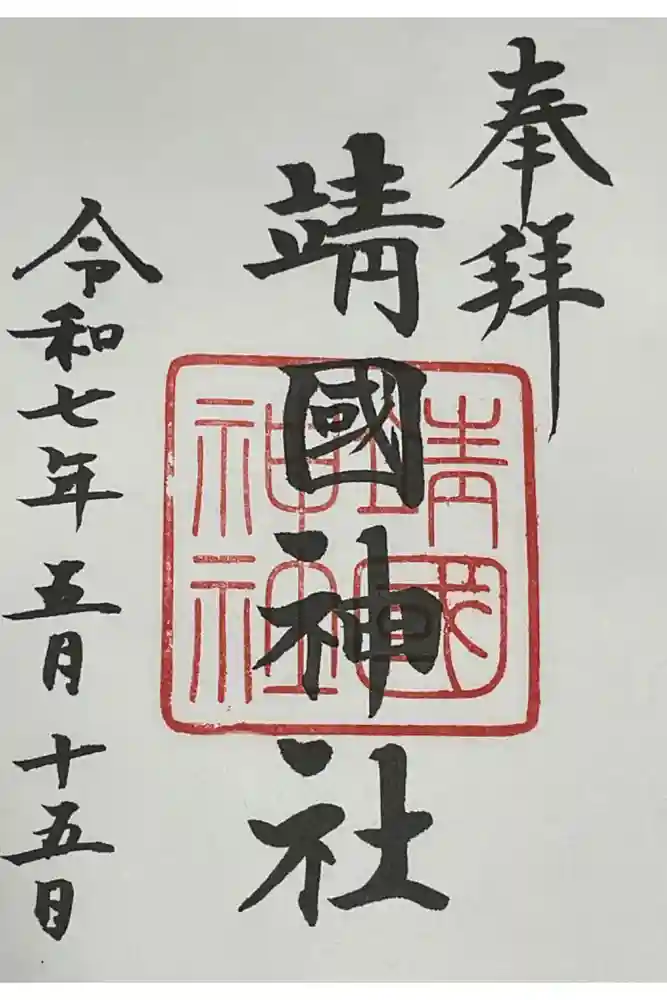 奉拝
靖國神社
靖國神社
令和七年五月十五日